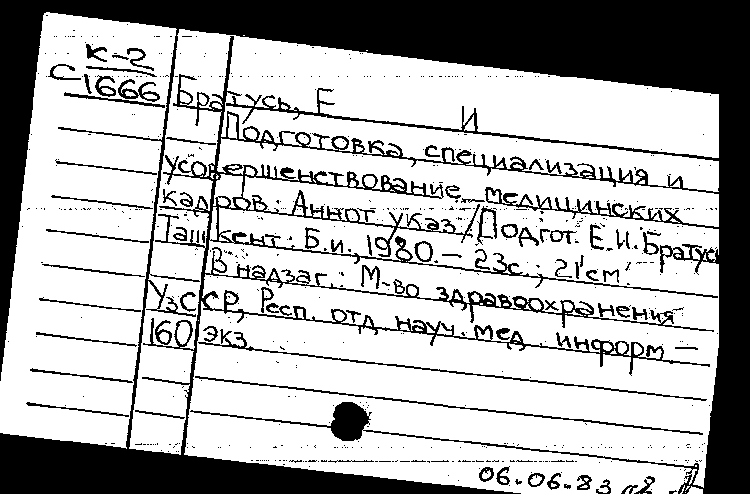 К-2
С 1666
Братусь, Е И
Подготовка, специализация и
усовершенствование медицинских
кадров: Аннот. указ./Подгот. Е.И. Братусь
Ташкент: Б.и., 1980. – 23с.; 21 см.
В надзаг.: М-во здравоохранения
УзССР, Респ. отд. науч. мед. информ. –
160 экз.
06.06.83